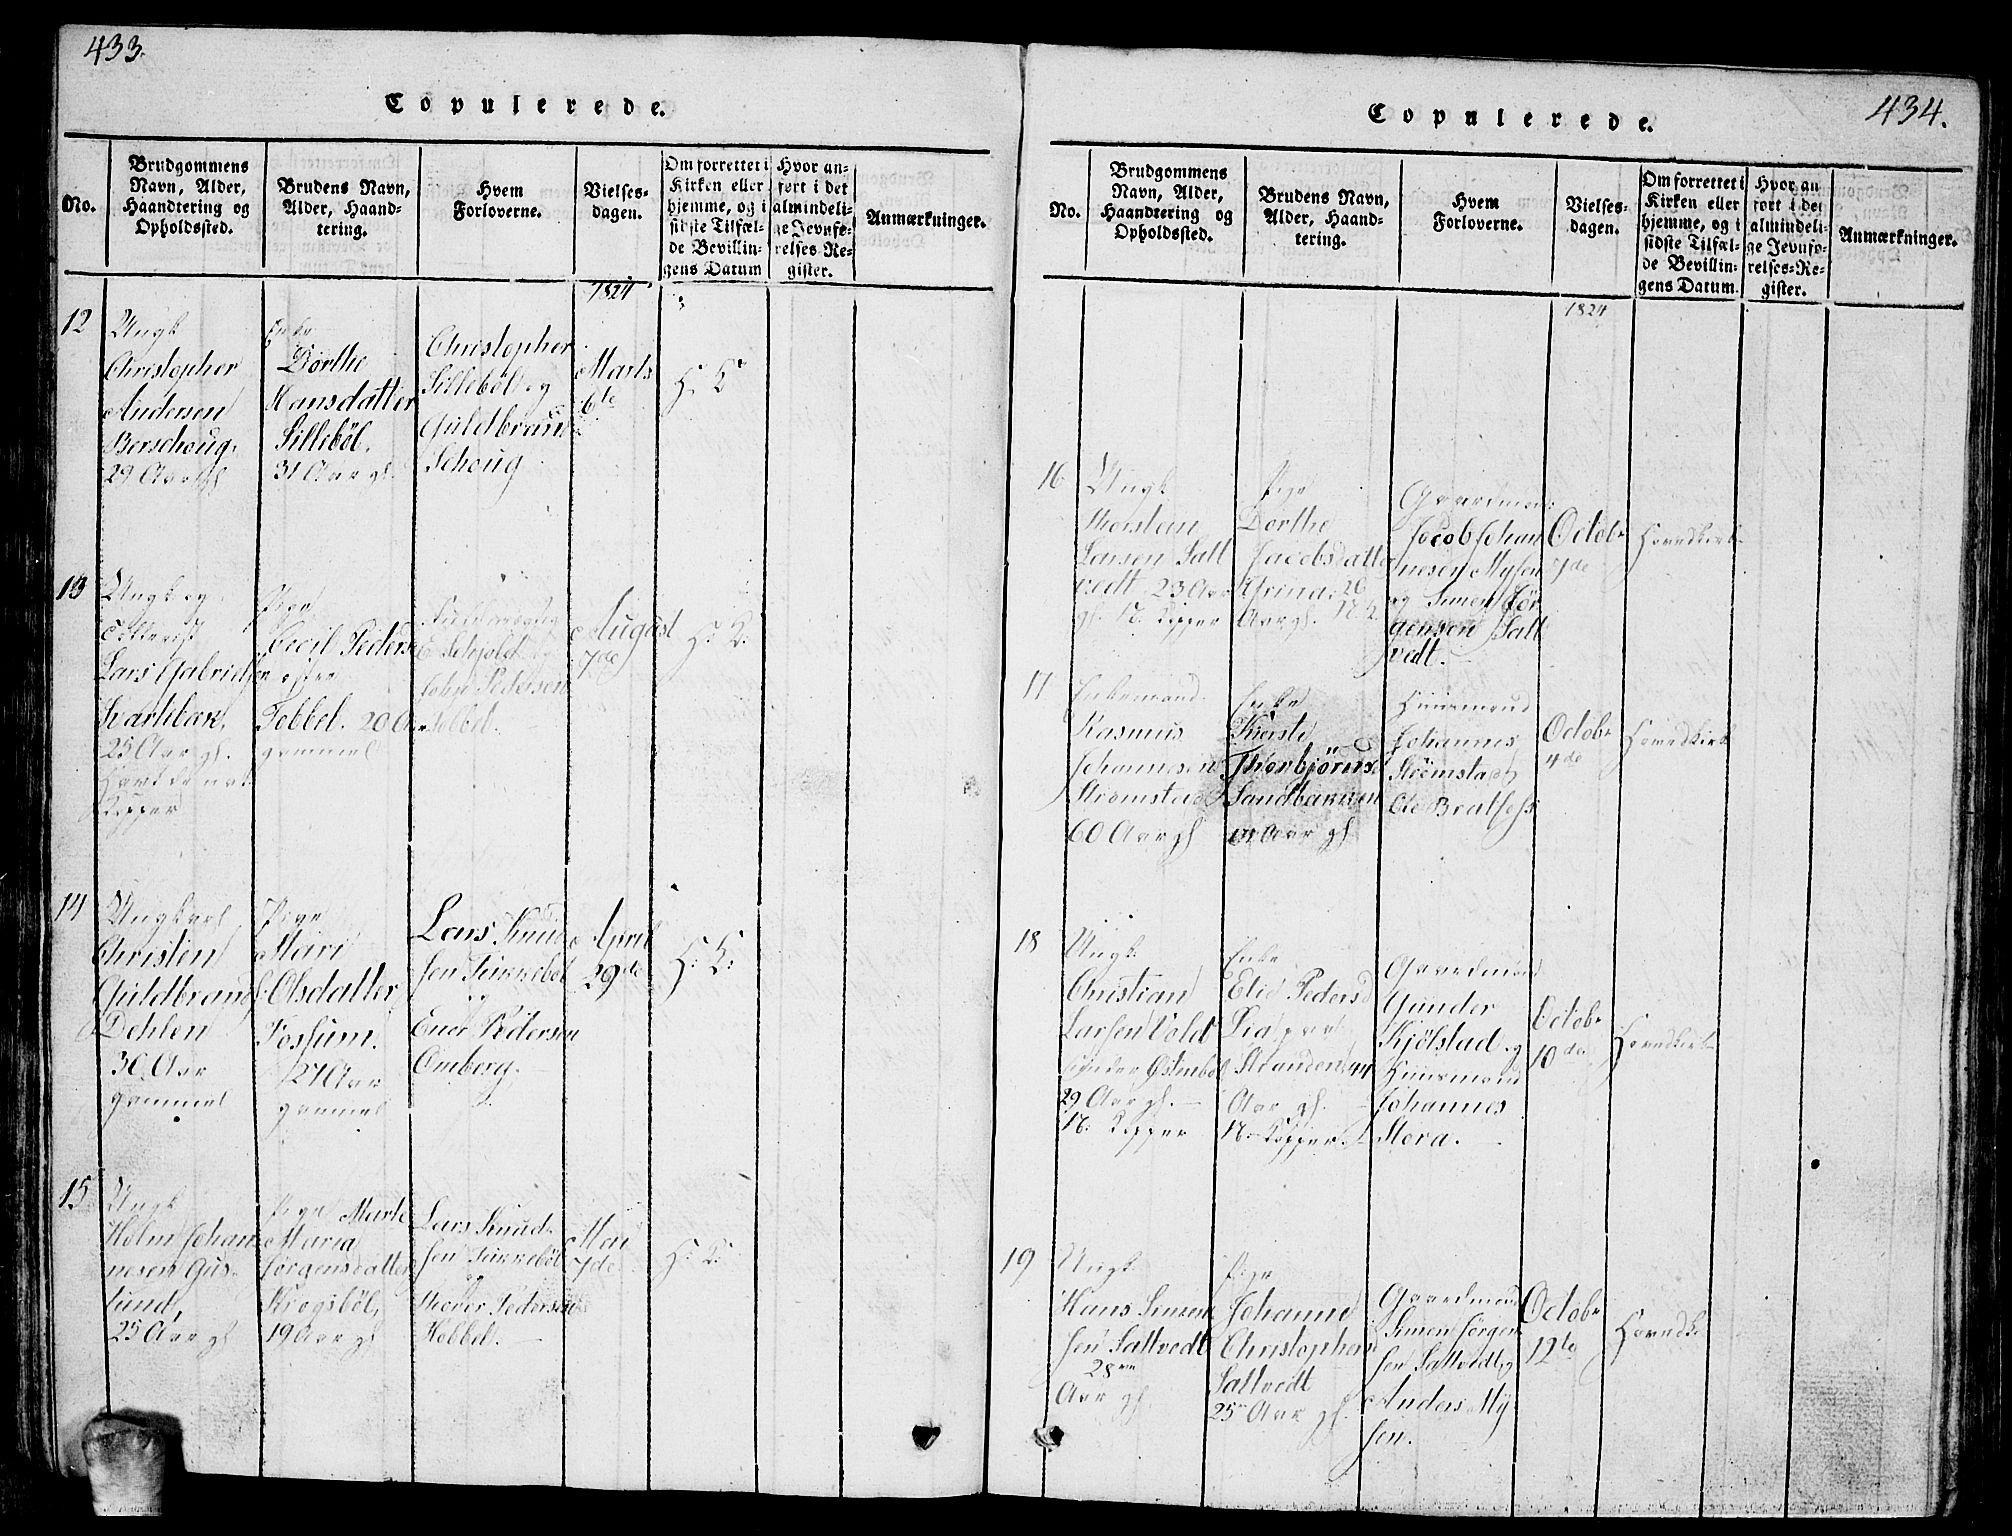 433.
Copulerede.
No.
Brudgommens
Navn, Alder,
Haandtering og
Opholdssted.
Brudens Navn,
Alder, Haand-
tering.
Hvem
Forloverne.
Vielses-
dagen.
Om forrettet i
Kirken eller
hjemme, og i
sidste Tilfæl-
de Bevillin-
gens Datum
Hvor an-
ført i det
almindeli-
ge Jevnfø-
relses-Re-
gister.
Anmærkninger.
1824
12
Ungk
Christopher
Andersen
Berschoug.
29 Aar gl
Enke
Dorthe
Hansdatter
Silleböl.
31 Aar gl.
Christopher
Silleböl og
Guldbrand
Schoug
Marts
6te
H. K
13
Ungk og
Lars Gabrielsen
Svartbak,
25 Aar gl.
Kopper
Pige
Cecil Peders
Tobbel. 20 Aar
gammel
Schjolt og
John Pedersen
Tobbel.
August
7de
H: K:
14
Ungkarl
Christen
Guldbrands
Dehlen
30 Aar
gammel
Pige
Mari
Olsdatter
Fossum.
27 Aar
gammel
Lars Knud
sen Turreböl
og
Ener Pedersen
Omberg.
April
29de
H: K:
15
Ungk
Holm Johan
nesen Gus-
lund,
25 Aar gl
Pige Marte
Maria
Jorgensdatter
Krogsböl,
19 Aar gl
Lars Knud-
sen Turreböl
og
Thover Pedersen
Hobbel.
Mai
7de
H: K:
434.
Copulerede.
No.
Brudgommens
Navn, Alder,
Haandtering og
Opholdssted.
Brudens Navn,
Alder, Haand-
tering.
Hvem
Forloverne.
Vielses-
dagen.
Om forrettet i
Kirken eller
hjemme, og i
sidste Tilfæl-
de Bevillin-
gens Datum.
Hvor an
ført i det
almindeli-
ge Jevnfø-
relses-Re-
gister.
Anmærkninger.
1824
16
Ungk
Thorsten
Larsen Salt
vedt 23 Aar
gl. N. Kopper
Pige
Dorthe
Jacobsdatter
26
Aar gl.
Gaardmand
Jacob Johan
nesen Mysen
og Simen Jör
gensen Salt
vedt.
Octobr
7de
Hovedkirk
17
Enkemand
Rasmus
Johannesen
Strömstad
60 Aar gl
Enke
Kiersti
Thorbjörnsd
Sandbakken
Aar gl
Huusmand
Johannes
Strömstad
Ole Bratfoss
Octobr
4de
Hovedkirk
18
Ungk
Christian
Larsen Vold
under Östenböl
29 Aar gl.
N. Kopper
Enke
Elie Pedersd
Stranden 44
Aar gl.
N. Kopper
Gaardmand
Gunder
Kjölstad og
Huusmand
Johannes
Stera.
Octobr
10de
Hovedkirk
19
Ungk
Hans Simen
sen Saltvedt
28
Aar gl.
Pige
Johanne
Christophersd
Saltvedt
25 Aar gl.
Gaardmand
Simen Jörgen
sen Saltvedt og
Anders My
sen.
Octobr
12te
Hovedk